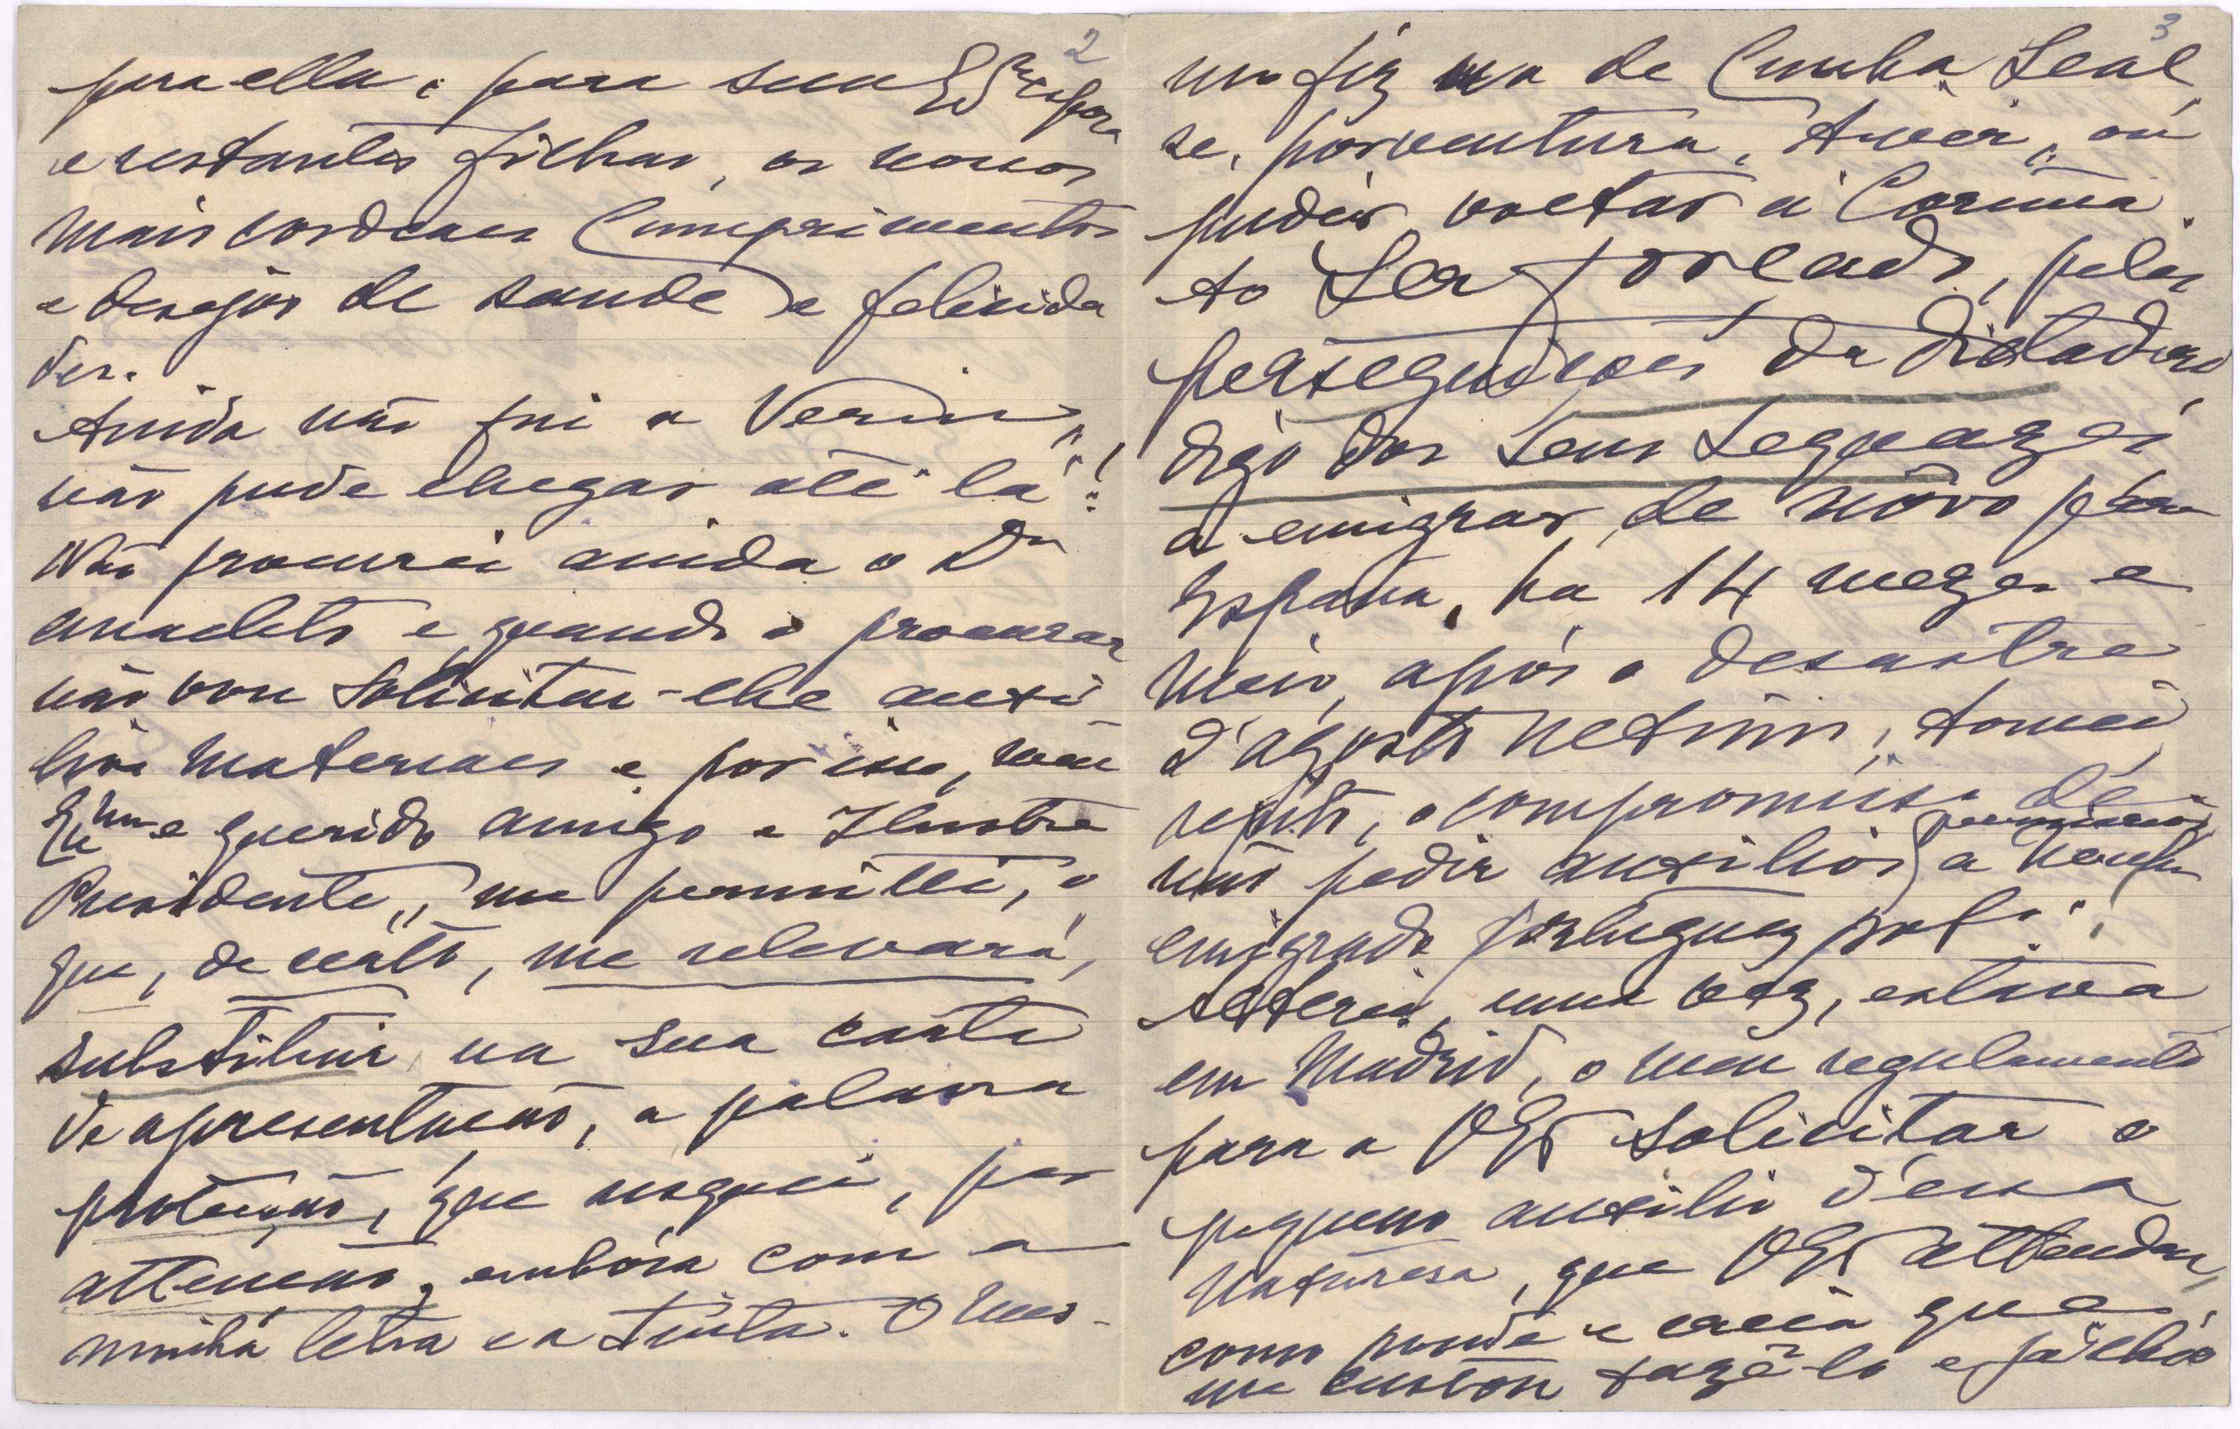 2
para ella e para sua Ex.ma Espoza
e restantes filhas, os nossos
mais cordeaes Cumprimentos
e desejos de saude e felicida
des.
Ainda não fui a Verin,,
não pude chegar até lá!
Não procurei ainda o Dr
Anacleto e quando o procurar
não vou solicitar-lhe auxi
lios materiaes e, por isso, meu
Ex.mo e querido amigo e Ilustre
Presidente,, me permitti, o
que, de certo, me relevará,
substituir na sua carta
de apresentação, a palavra
proteção, que risquei, por
attenção, embóra com a
minha letra e a tinta. O mes-
3
mo fiz na de Cunha Leal,
se, porventura, tiver, ou
puder voltar á Coruña.
Ao ser forçado, pelas
perseguições da dictadura
digo dos seus sequazes
a emigrar, de nôvo para
España, ha 14 mezes e
meio, após o desastre
d'agosto ultimo, tomei,
repito, o compromisso de
não pedir auxilios pecuniarios a nenhum
emigrado portuguez
alterei, uma vez, estava
em Madrid, o meu regulamento
para a VEx solicitar o
pequeno auxilio d'essa
naturesa, que VEx attendeu,
como poude e creia que
me custou fazê-lo e já lho